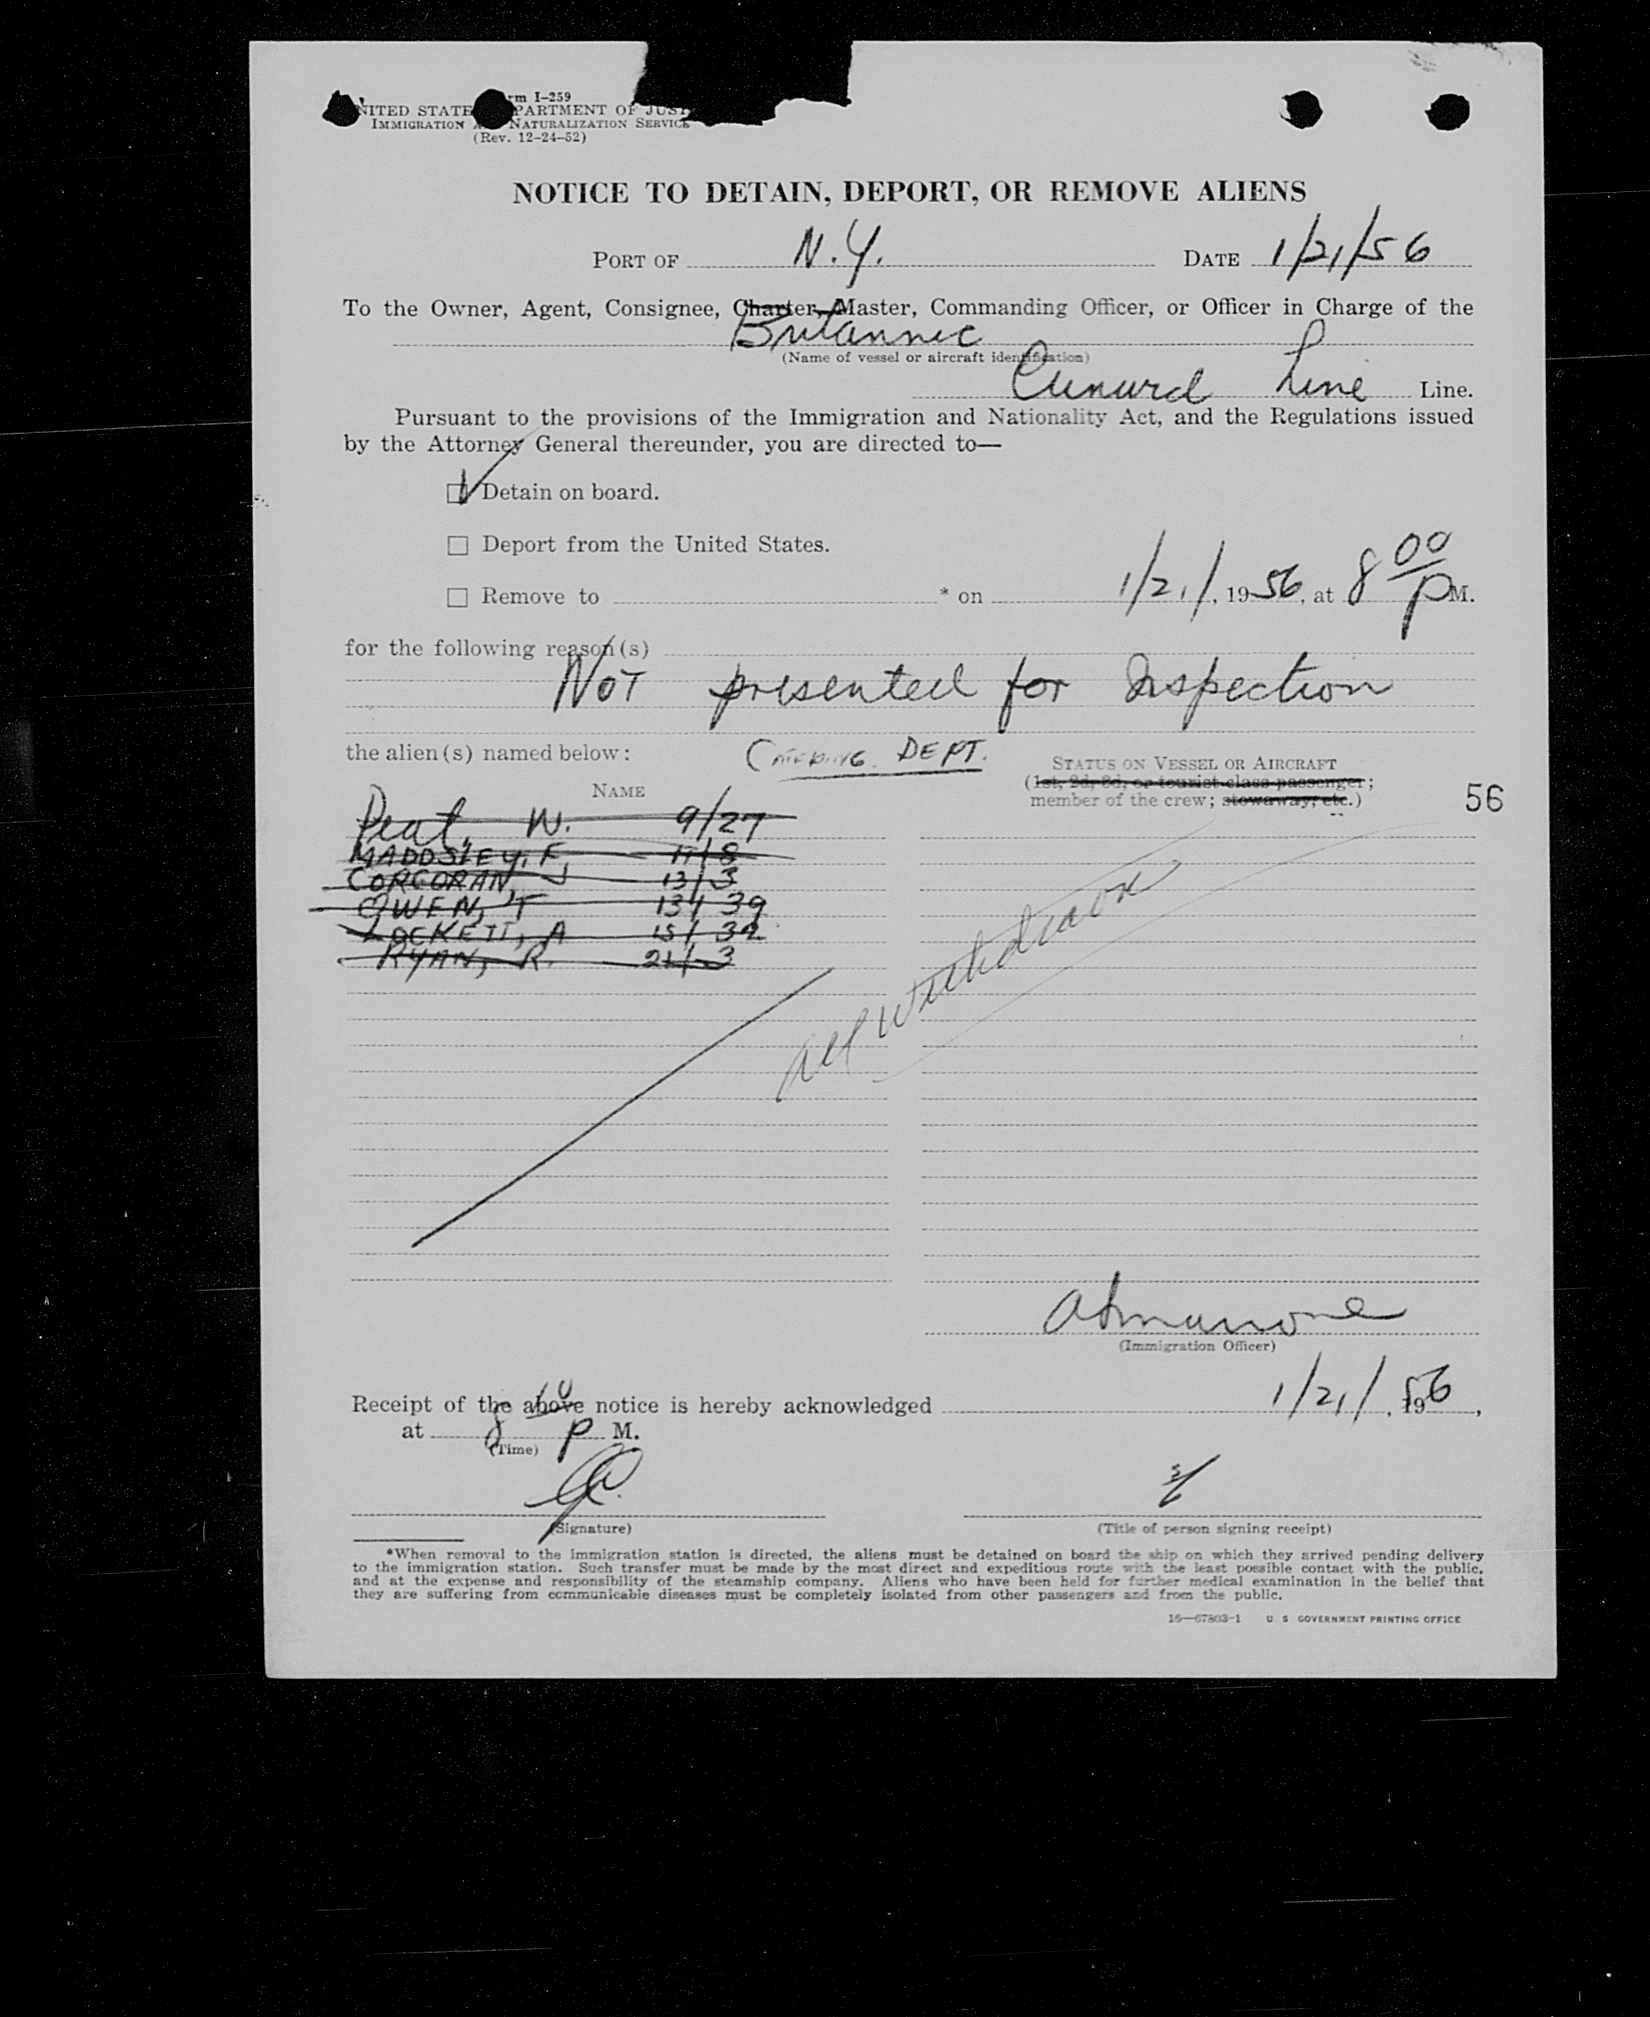 rm I-259
NITED STATE PARTMENT OF JUST
IMMIGRATION NATURALIZATION SERVICE
(Rev. 12-24-52)
NOTICE TO DETAIN, DEPORT, OR REMOVE ALIENS
PORT OF N.Y. DATE 1/21/56
To the Owner, Agent, Consignee, Charter, Master, Commanding Officer, or Officer in Charge of the
Britannic
(Name of vessel or aircraft identification)
Cunard Line Line.
Pursuant to the provisions of the Immigration and Nationality Act, and the Regulations issued
by the Attorney General thereunder, you are directed to—
☑ Detain on board.
☐ Deport from the United States.
☐ Remove to * on 1/21/, 1956, at 8 00 P M.
for the following reason(s)
NOT presented for Inspection
the alien(s) named below: CATERING DEPT.
STATUS ON VESSEL OR AIRCRAFT
(1st, 2d, 3d, or tourist class passenger;
member of the crew; stowaway, etc.)
NAME
56
Peat, W. 9/27
MADDSLEY, F, 11/8
CORCORAN, J 13/3
OWEN, T 13/39
LOCKETT, A 15/32
RYAN, R. 21/3
All withdrawn
(Immigration Officer)
Receipt of the above notice is hereby acknowledged 1/21/, 1956,
at 8 10 P M.
(Time)
(Signature)
(Title of person signing receipt)
*When removal to the immigration station is directed, the aliens must be detained on board the ship on which they arrived pending delivery
to the immigration station. Such transfer must be made by the most direct and expeditious route with the least possible contact with the public,
and at the expense and responsibility of the steamship company. Aliens who have been held for further medical examination in the belief that
they are suffering from communicable diseases must be completely isolated from other passengers and from the public.
16—67803-1 U S GOVERNMENT PRINTING OFFICE